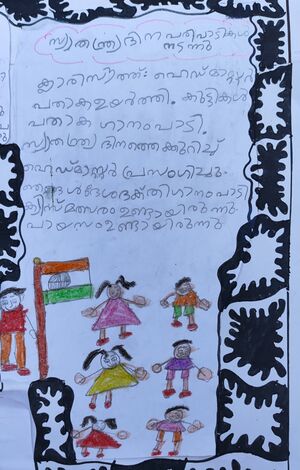 സ്വതന്ത്ര്യദിന പരിപാടികൾ
നടന്നു
ക്ലാരിസിത്ത്: ഹെഡ്മാസ്റ്റർ
പതാക ഉയർത്തി. കുട്ടികൾ
പതാക ഗാനം പാടി.
സ്വതന്ത്ര്യ ദിനത്തെക്കുറിച്ച്
ഹെഡ്മാസ്റ്റർ പ്രസംഗിച്ചു.
ഞങ്ങൾ ദേശഭക്തിഗാനം പാടി
ക്വിസ് മത്സരം ഉണ്ടായിരുന്നു.
പായസം ഉണ്ടായിരുന്നു